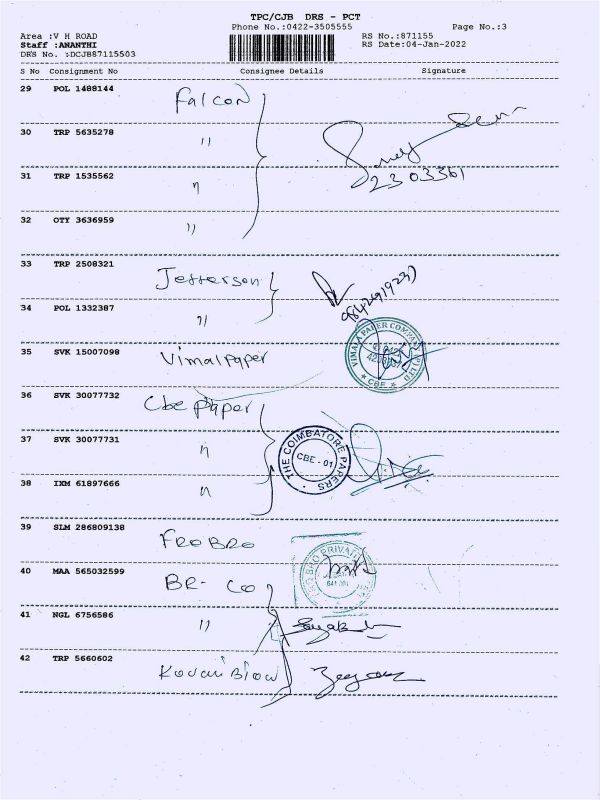 TPC/CJB DRS - PCT
Phone No.:0422-3505555 Page No.:3
Area :V H ROAD RS No.:871155
Staff :ANANTHI RS Date:04-Jan-2022
DRS No. :DCJB87115503
S No Consignment No Consignee Details Signature
29 POL 1488144 Falcon
30 TRP 5635278 "
2303361
31 TRP 1535562 "
32 OTY 3636959 "
33 TRP 2508321 Jefferson
34 POL 1332387 "
35 SVK 15007098 Vimalpaper
VIMALA PAPER COMPANY (P) LTD
* CBE *
36 SVK 30077732 Cbe paper
37 SVK 30077731 "
THE COIMBATORE PAPERS
CBE - 01
38 IXM 61897666 "
39 SLM 286809138 FROBRO
40 MAA 565032599 BR- CO
BRO PRIVATE
41 NGL 6756586 "
42 TRP 5660602